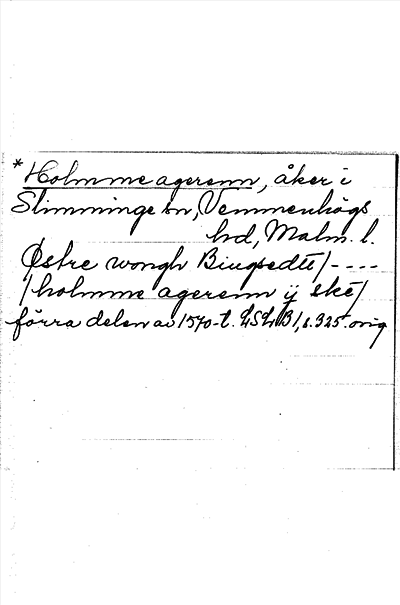 *Holmme agerenn, åker i
Slimminge sn, Vemmenhögs
hd, Malm. l.
Østre wongh Biugsedtt/----
/holmme agerenn ij ske/
förra delen av 1570-t. LSLB1, s. 325. orig